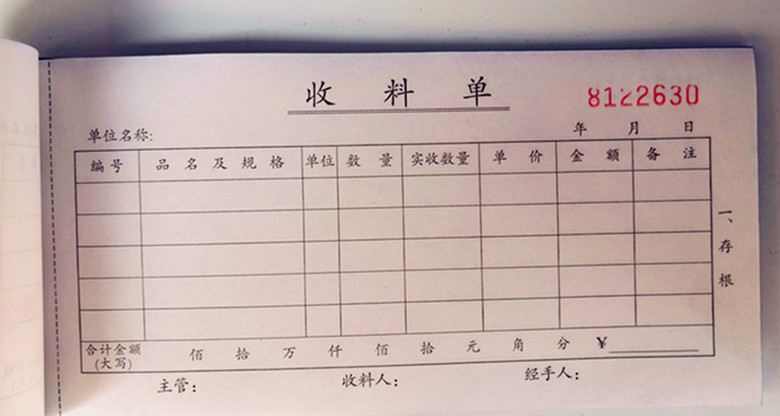 收料单
8122630
单位名称: 年 月 日
编号 品名及规格 单位 数量 实收数量 单价 金额 备注
一、存根
合计金额(大写) 佰 拾 万 仟 佰 拾 元 角 分 ¥
主管: 收料人: 经手人: